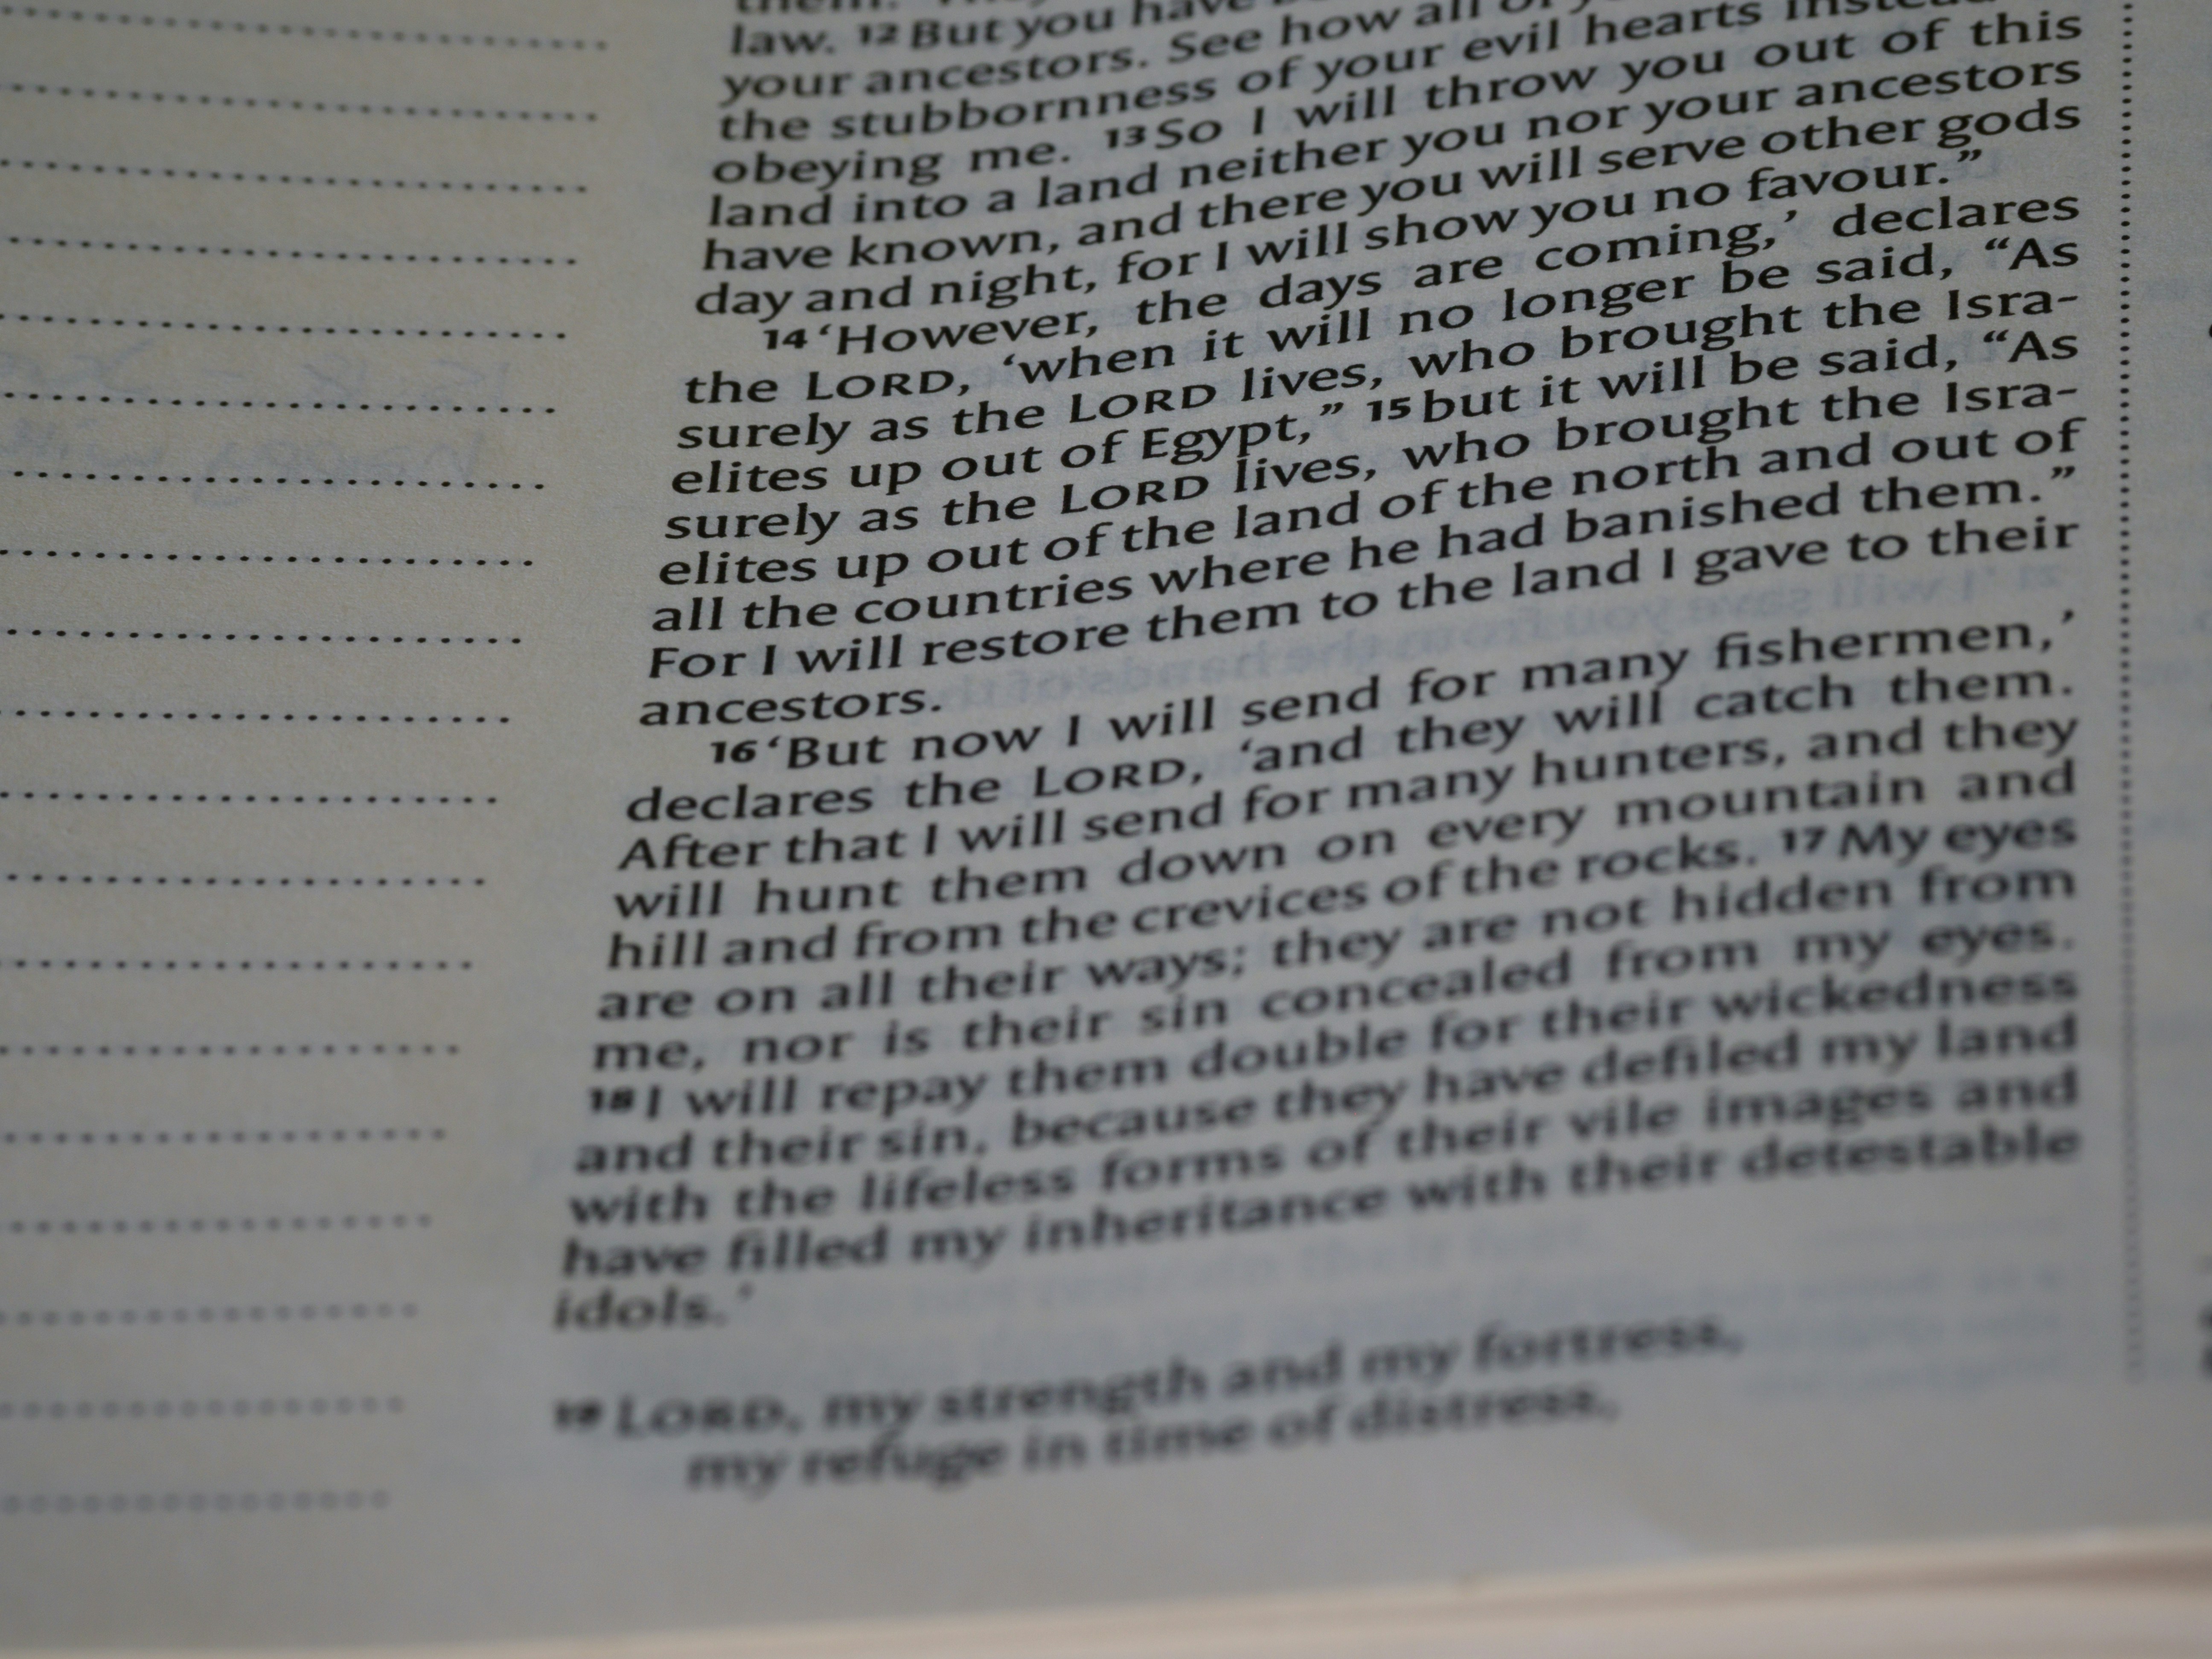 law. 12 But you have
your ancestors. See how all
the stubbornness of your evil hearts
obeying me. 13 So I will throw you out of this
land into a land neither you nor your ancestors
have known, and there you will serve other gods
day and night, for I will show you no favour.”
14 ‘However, the days are coming,’ declares
the LORD, ‘when it will no longer be said, “As
surely as the LORD lives, who brought the Isra-
elites up out of Egypt,” 15 but it will be said, “As
surely as the LORD lives, who brought the Isra-
elites up out of the land of the north and out of
all the countries where he had banished them.”
For I will restore them to the land I gave to their
ancestors.
16 ‘But now I will send for many fishermen,’
declares the LORD, ‘and they will catch them.
After that I will send for many hunters, and they
will hunt them down on every mountain and
hill and from the crevices of the rocks. 17 My eyes
are on all their ways; they are not hidden from
me, nor is their sin concealed from my eyes.
18 I will repay them double for their wickedness
and their sin, because they have defiled my land
with the lifeless forms of their vile images and
have filled my inheritance with their detestable
idols.’
19 LORD, my strength and my fortress,
my refuge in time of distress,